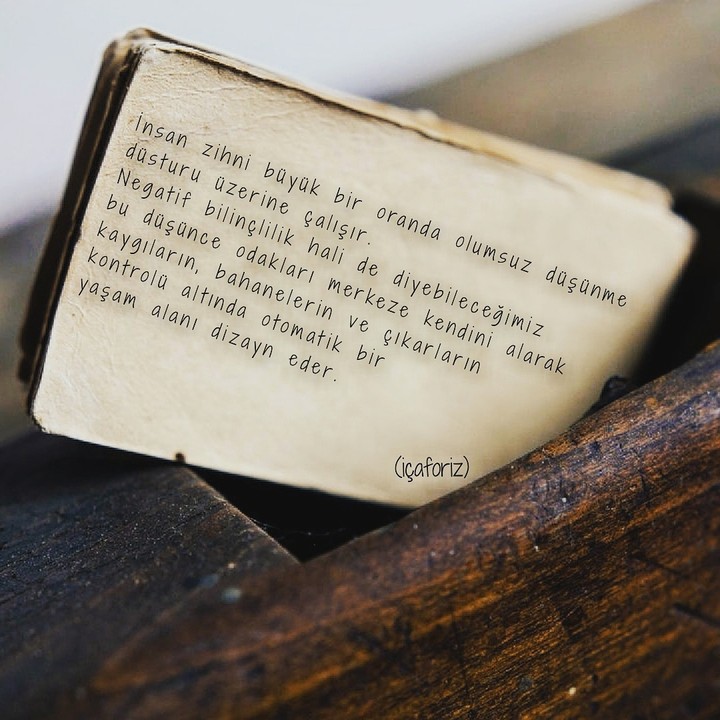 İnsan zihni büyük bir oranda olumsuz düşünme
düsturu üzerine çalışır.
Negatif bilinçlilik hali de diyebileceğimiz
bu düşünce odakları merkeze kendini alarak
kaygıların, bahanelerin ve çıkarların
kontrolü altında otomatik bir
yaşam alanı dizayn eder.
(içaforiz)